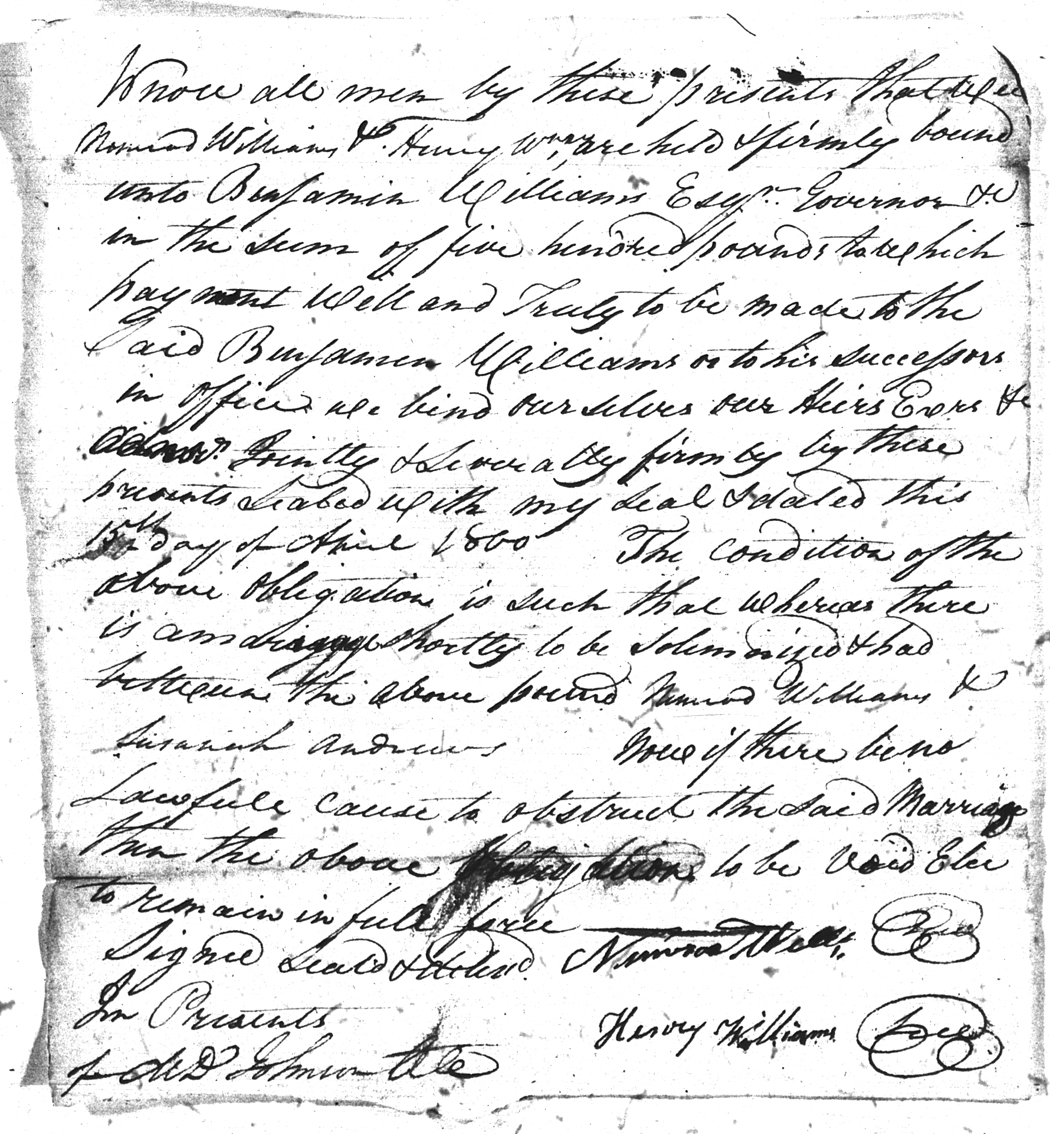 Know all men by these presents that Wee
Nimrod Williams & Henry Wms, are held & firmly bound
unto Benjamin Williams Esqr. Governor &c
in the sum of five hundred pounds to which
payment Well and Truly to be made to the
Said Benjamin Williams or to his successors
in office we bind our selves our Heirs Exrs &
admrs. Jointly & Severally firmly by these
presents Sealed with my Seal & dated this
15th day of April 1800 The Condition of the
above obligation is such that whereas there
is a marriage shortly to be Solemnized & had
between the above pound Nimrod Williams &
Susanah Andrews Now if there be no
Lawfull cause to obstruct the said Marriage
then the above obligation to be Void Else
to remain in full force
Signed Seald & delivd Nimrod Seal
In Presents Henry Williams Seal
of Johnson